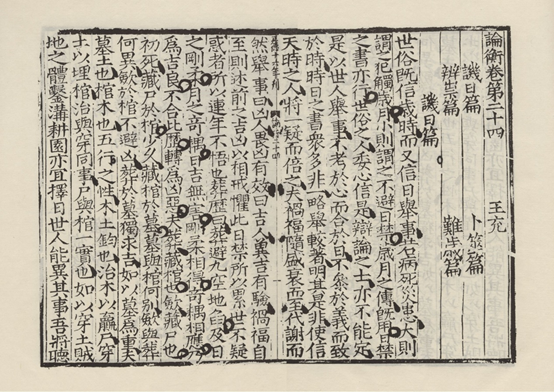 論衡卷第二十四
王充
譏日篇　卜筮篇
辨祟篇　難歲篇
譏日篇
世俗既信歲時而又信日舉事若病死災患大則
謂之犯觸歲月小則謂之不避日禁歲月之傳既用日禁
之書亦行世俗之人委心信之辯論之士亦不能定
是以世人舉事不考於心而合於日不參於義而致
於時時日之書衆多非一略舉較著明其是非使信
天時之人將一疑而倍之夫禍福隨盛衰而至代謝而
然舉事曰凶人畏凶有效曰吉人冀吉有驗禍福自
至則述前之吉凶以相戒懼此日禁所以累世不疑
惑者所以連年不悟也葬歷曰葬避九空地臽及日
之剛柔月之奇耦日吉無害剛柔相得奇耦相應乃
為吉良不合此歷轉為凶惡夫葬藏棺也斂藏尸也
初死藏尸於棺少久藏棺於墓墓與棺何別斂與葬
何異斂於棺不避凶葬於墓獨求吉如以墓為重夫
墓土也棺木也五行之性木土鈞也治木以贏尸穿
土以埋棺治與穿同事尸與棺一實也如以穿土賊
地之體鑿溝耕園亦宜擇日世人能異其事吾將聽